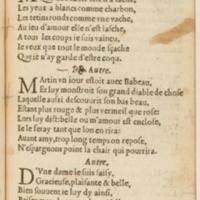 Les yeux a blancs comme charbon,
Les tetins ronds comme vne vache,
Au ieu d'amour elle n'est lasche,
A tous les coups ie suis vaincu,
Ie veux que tout le monde sçache
Que ie n'ay garde d'estre coqu.
Autre.
MArtin vn iour estoit auec Babeau,
Et luy monstroit son grand diable de chose
Laquelle aussi descouurit son bas beau,
Estant plus rouge & plus vermeil que rose:
Lors luy dist: belle ou m'amour est enclose,
Ie le feray tant que lon en rira:
Auant amy, trop long temps on repose,
N'espargnons point la chair qui pourrira.
Autre.
D'Vne dame ie suis saisy,
Gracieuse, plaisante & belle,
Bien souuent ie luy dy ainsi,